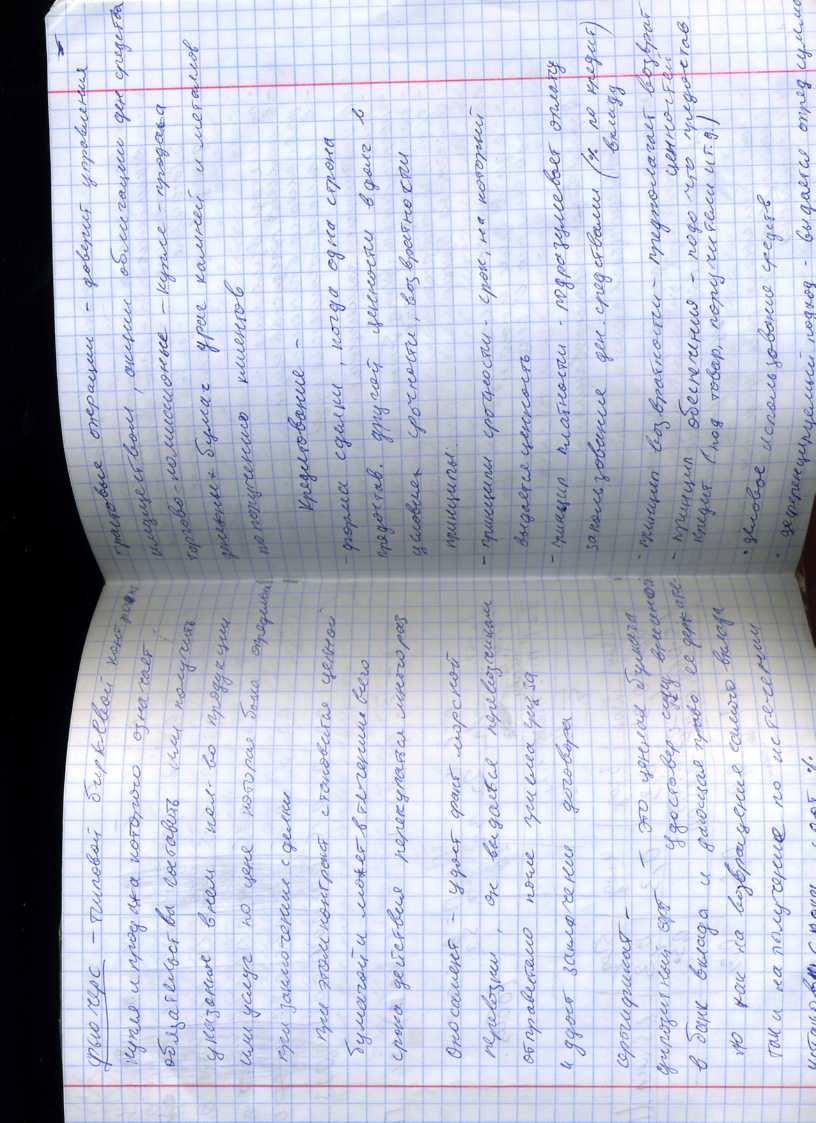 фьючерс - типовой биржевой контракт
купля и продажа которого означает
обязательство поставить или получить
указанное в нем кол-во продукции
или услуг по цене которая была определена
при заключении сделки
при этом контракт становится ценной
бумагой и может в течение всего
срока действия перекупатся много раз
Оносамент - удост факт морской
перевозки, он выдается перевозчиком
отправителю после приема груза
и удост заключение договора
Сертификат -
депозитный серт - это ценная бумага
удостовер сумму внесенной
в банк вклада и дающая право ее держате-
лю как на возвращение самого вклада
так и на получение по истечении
% 
трастовые операции - доверит управления
имуществом, акции облигации ден средства
торгово-комиссионные - купле-продажа
ценных бумаг драг камней и металлов
по поручению клиентов
Кредитование -
- форма сделки, когда одна строна
предостав. другой ценности в долг в
условиях срочности, возвратности
принципы.
- принципы срочности - срок, на который
выдается ценность
- принцип платности - подразумевает оплату
за пользование ден. средствами (% по кредит)
вкладу
- принцип возвратности - предполагает возврат
ценностей
- принцип обеспечения - подо что предостав
кредит (под товар, поручители и т.д.)
• целовое использование средств
• дефференцируемый подход - выдается опред сумма